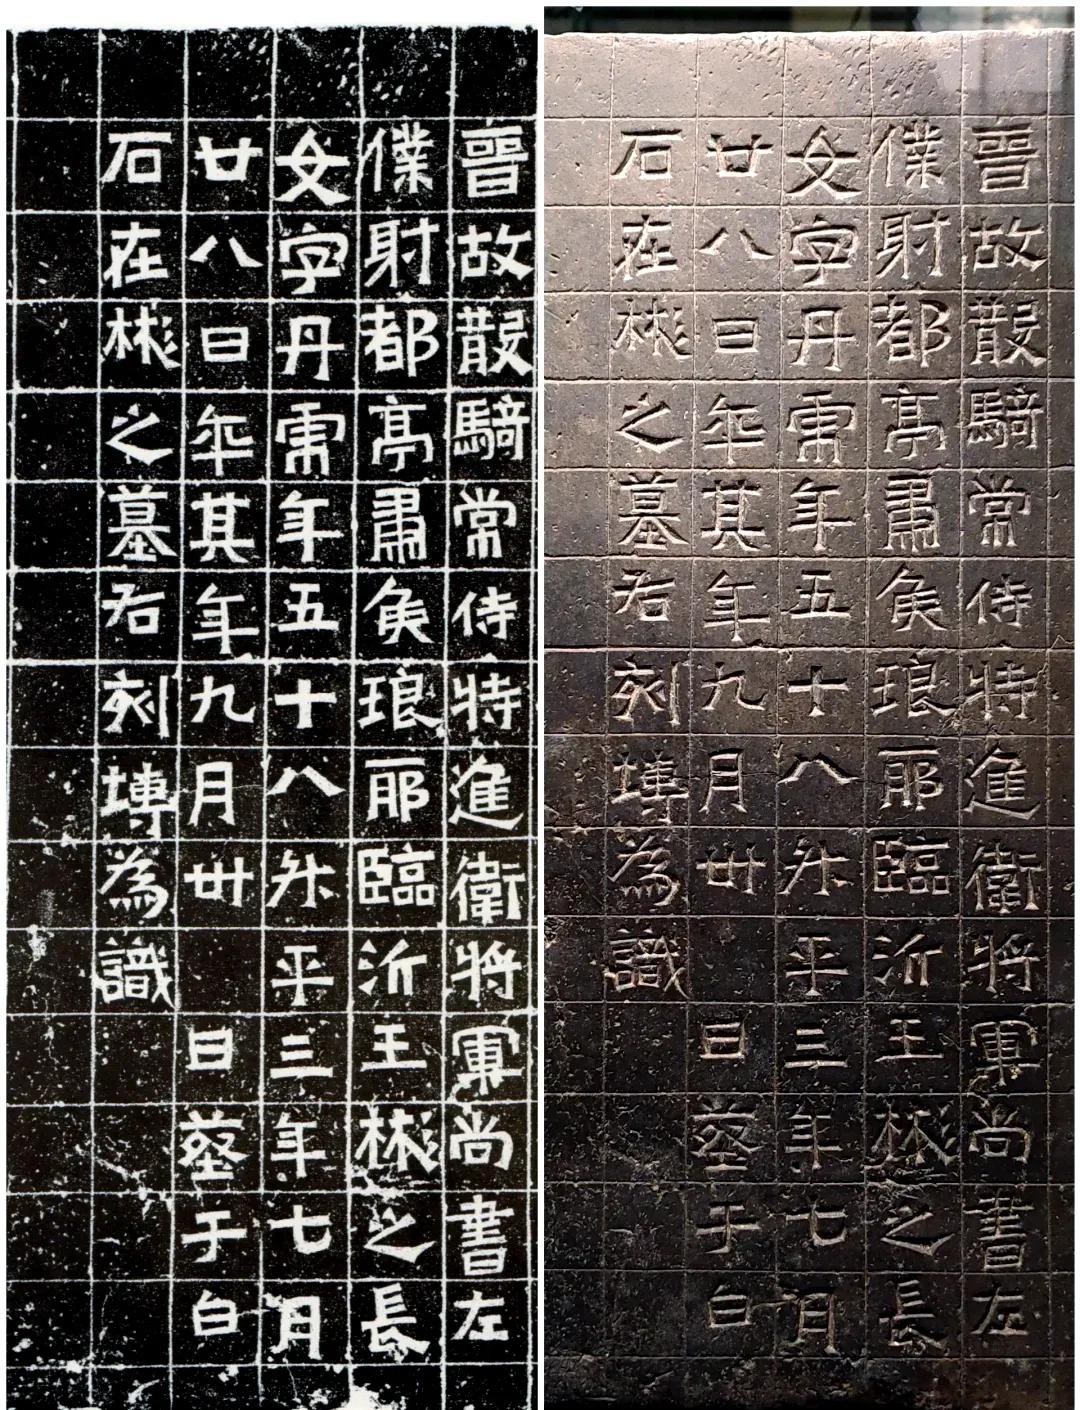 晉故散騎常侍特進衛將軍尚書左
僕射都亭肅侯琅耶臨沂王彬之長
女字丹虎年五十八升平三年七月
廿八日卒其年九月卅日葬于白
石在彬之墓右刻塼為識
晉故散騎常侍特進衛將軍尚書左
僕射都亭肅侯琅耶臨沂王彬之長
女字丹虎年五十八升平三年七月
廿八日卒其年九月卅日葬于白
石在彬之墓右刻塼為識